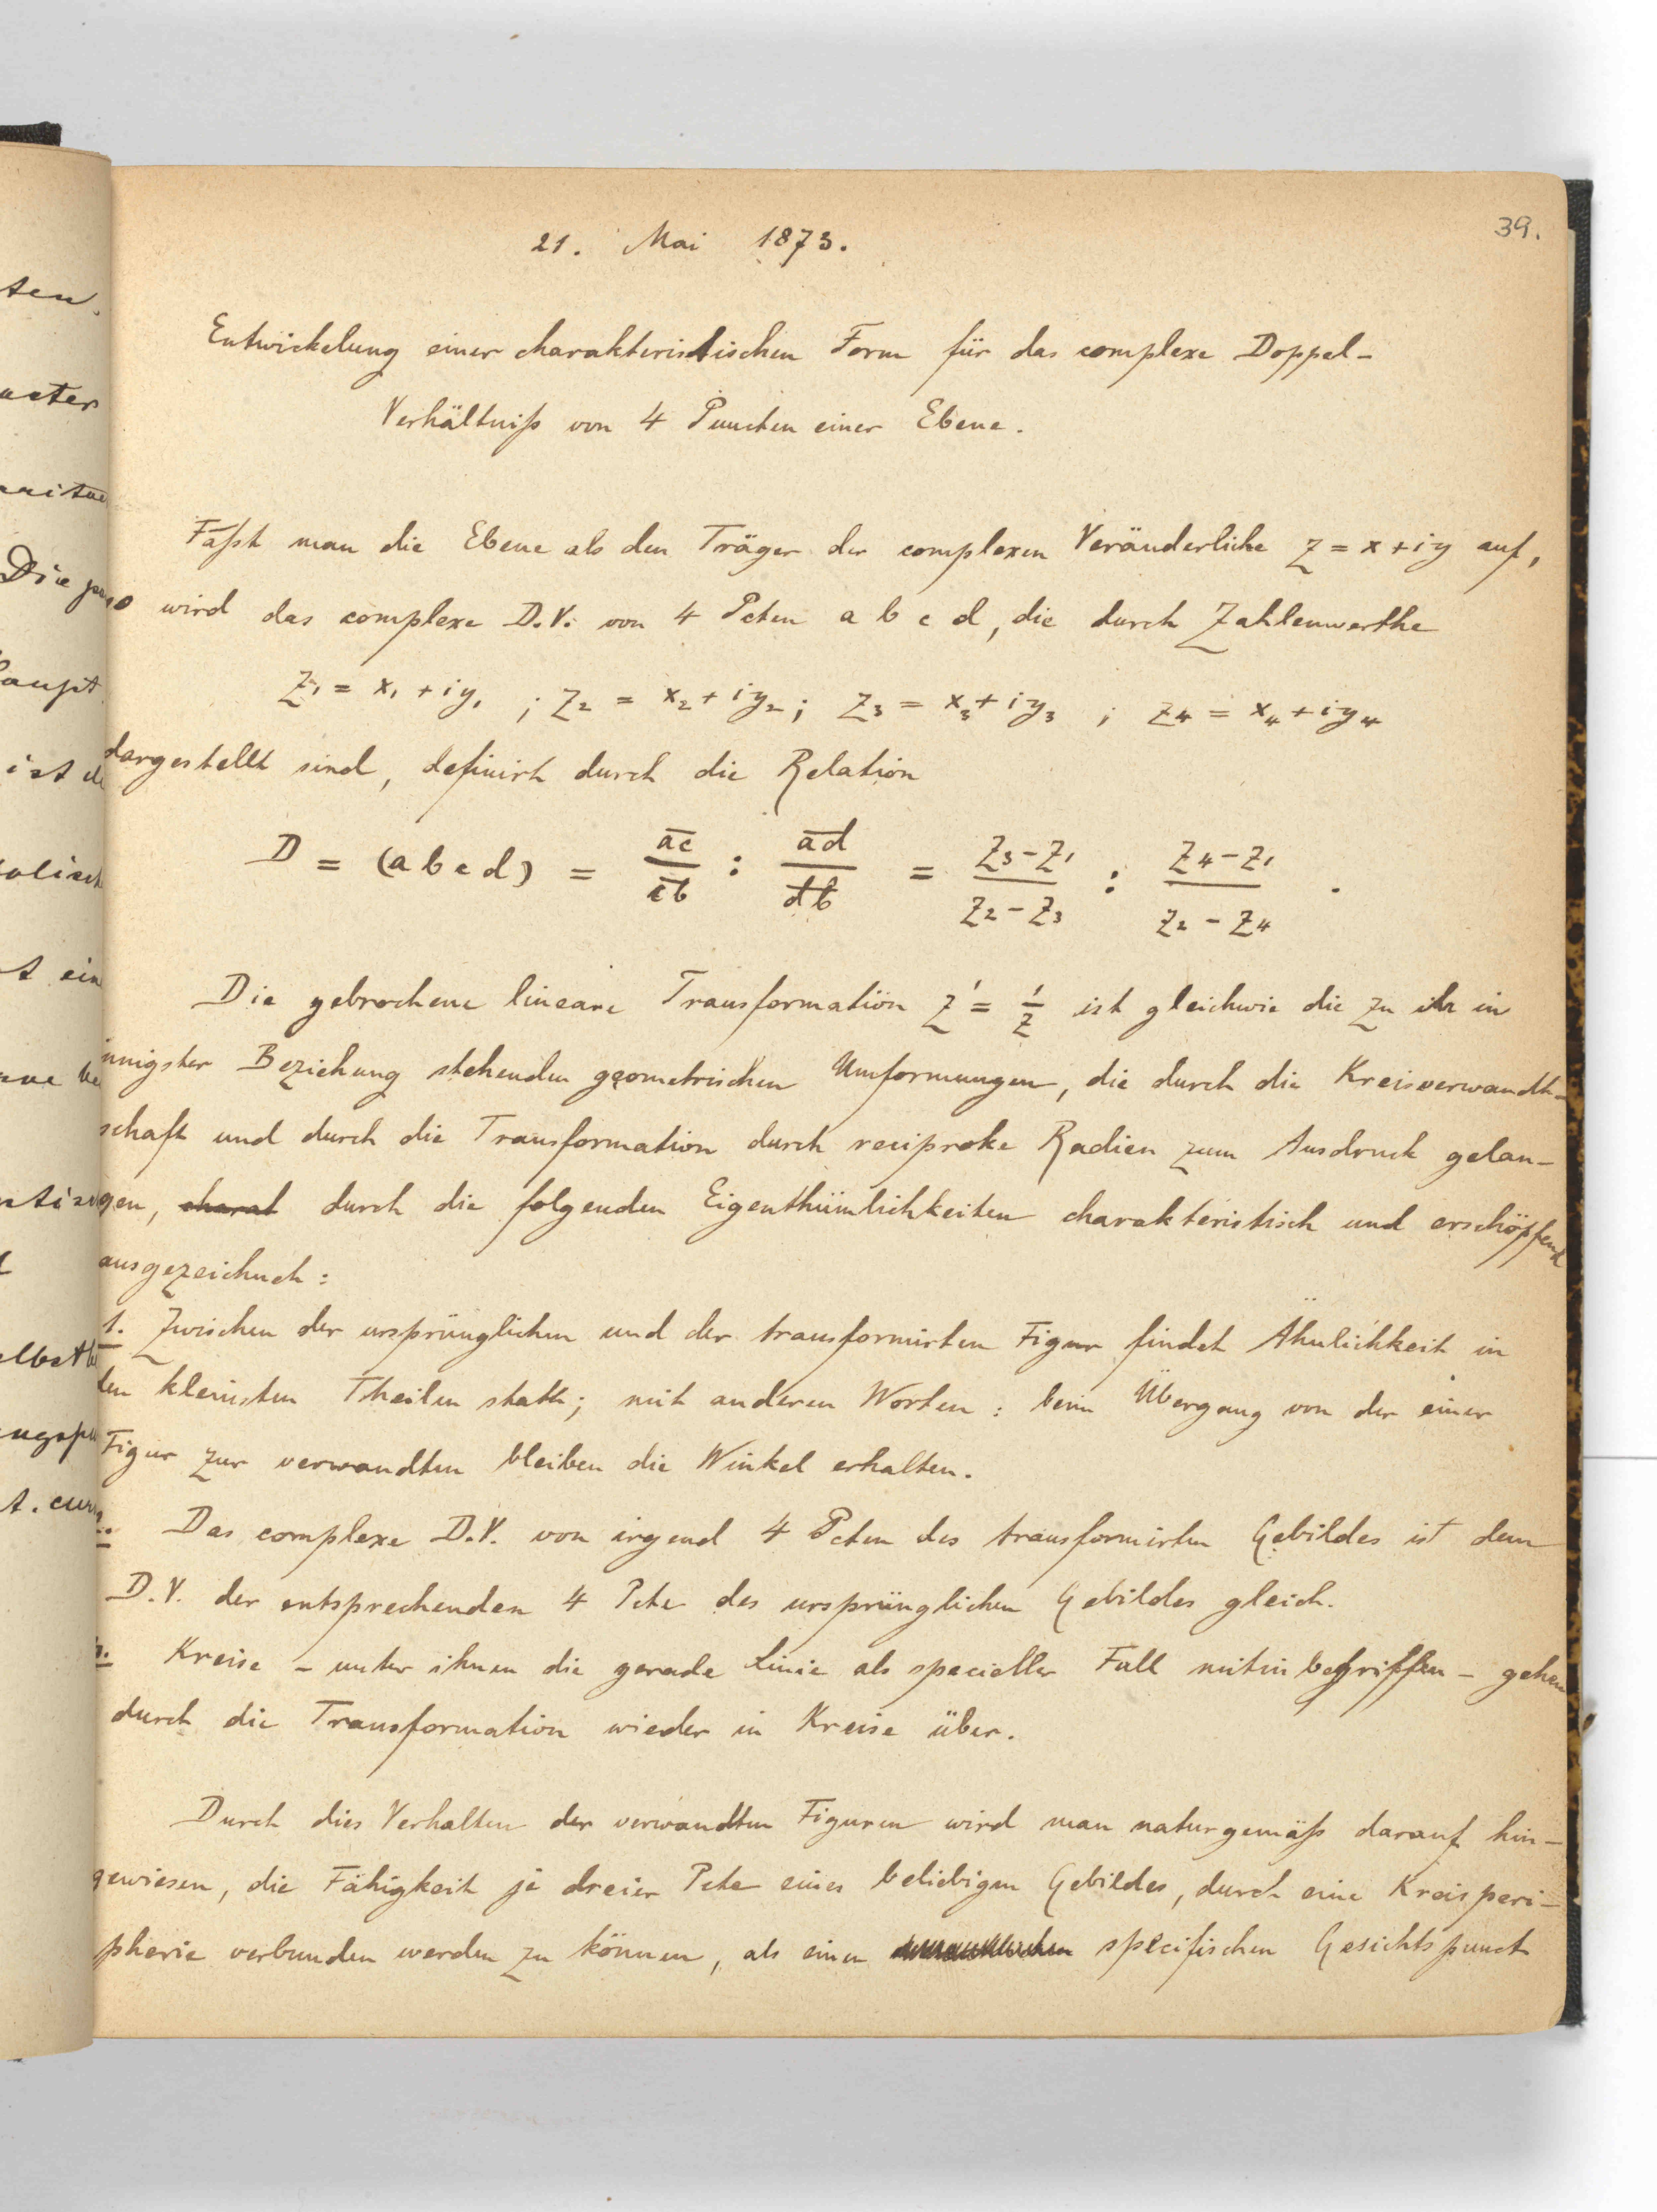 39.
21. Mai 1873.
Entwickelung einer charakteristischen Form für das complexe Doppel-
Verhältniß von 4 Puncten einer Ebene.
Faßt man die Ebene als den Träger der complexen Veränderliche z = x + iy auf,
so wird das complexe D.V. von 4 Pcten a b c d, die durch Zahlenwerthe
z₁ = x₁ + iy₁ ; z₂ = x₂ + iy₂ ; z₃ = x₃ + iy₃ ; z₄ = x₄ + iy₄
dargestellt sind, definirt durch die Relation
D = (a b c d) = \frac{\overline{ac}}{\overline{cb}} : \frac{\overline{ad}}{\overline{db}} = \frac{z₃ - z₁}{z₂ - z₃} : \frac{z₄ - z₁}{z₂ - z₄} .
Die gebrochene lineare Transformation z' = \frac{1}{z} ist gleichwie die zu ihr in
innigster Beziehung stehenden geometrischen Umformungen, die durch die Kreisverwandt-
schaft und durch die Transformation durch reciproke Radien zum Ausdruck gelan-
gen, charak durch die folgenden Eigenthümlichkeiten charakteristisch und erschöpfend
ausgezeichnet:
1. Zwischen der ursprünglichen und der transformirten Figur findet Ähnlichkeit in
den kleinsten Theilen statt; mit anderen Worten: beim Übergang von der einer
Figur zur verwandten bleiben die Winkel erhalten.
2. Das complexe D.V. von irgend 4 Pcten des transformirten Gebildes ist dem
D.V. der entsprechenden 4 Pcte des ursprünglichen Gebildes gleich.
3. Kreise - unter ihnen die gerade Linie als specieller Fall mitin begriffen - gehen
durch die Transformation wieder in Kreise über.
Durch dies Verhalten der verwandten Figuren wird man naturgemäß darauf hin-
gewiesen, die Fähigkeit je dreier Pcte eines beliebigen Gebildes, durch eine Kreisperi-
pherie verbunden werden zu können, als einen specifischen Gesichtspunct